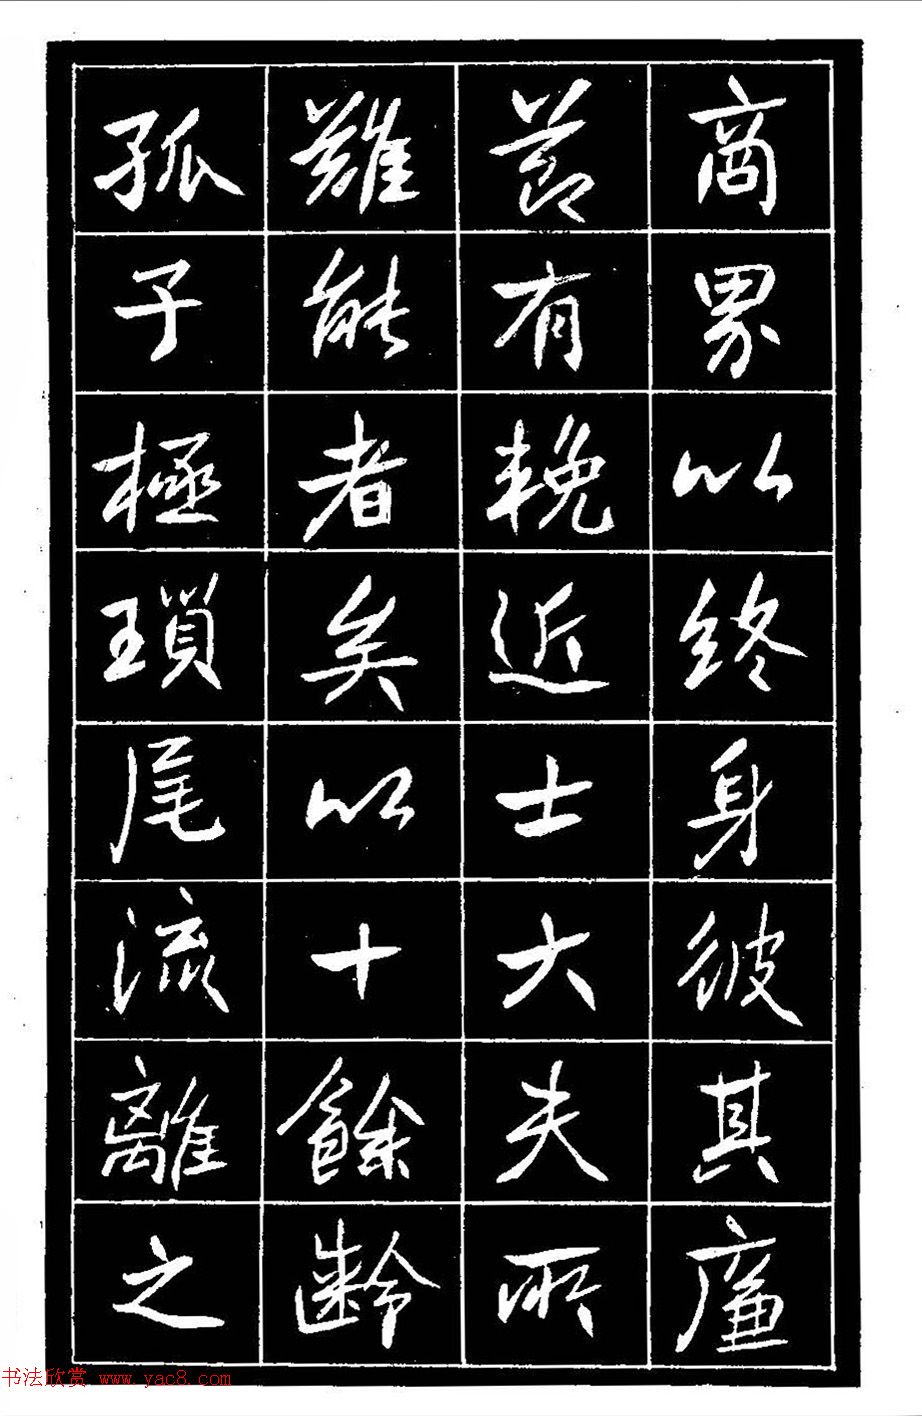 商累以終身彼其廉
節有輓近士大夫所
難能者矣以十餘齡
孤子極瑣尾流離之
书法欣赏 www.yac8.com